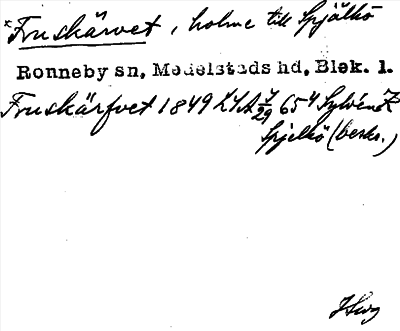 *Fruskärvet, holme till Spjälkö
Ronneby sn, Medelstads hd, Blek. l.
Fruskärfvet 1849 LSA 7/29 65 4
Spjelkö (beskr.)